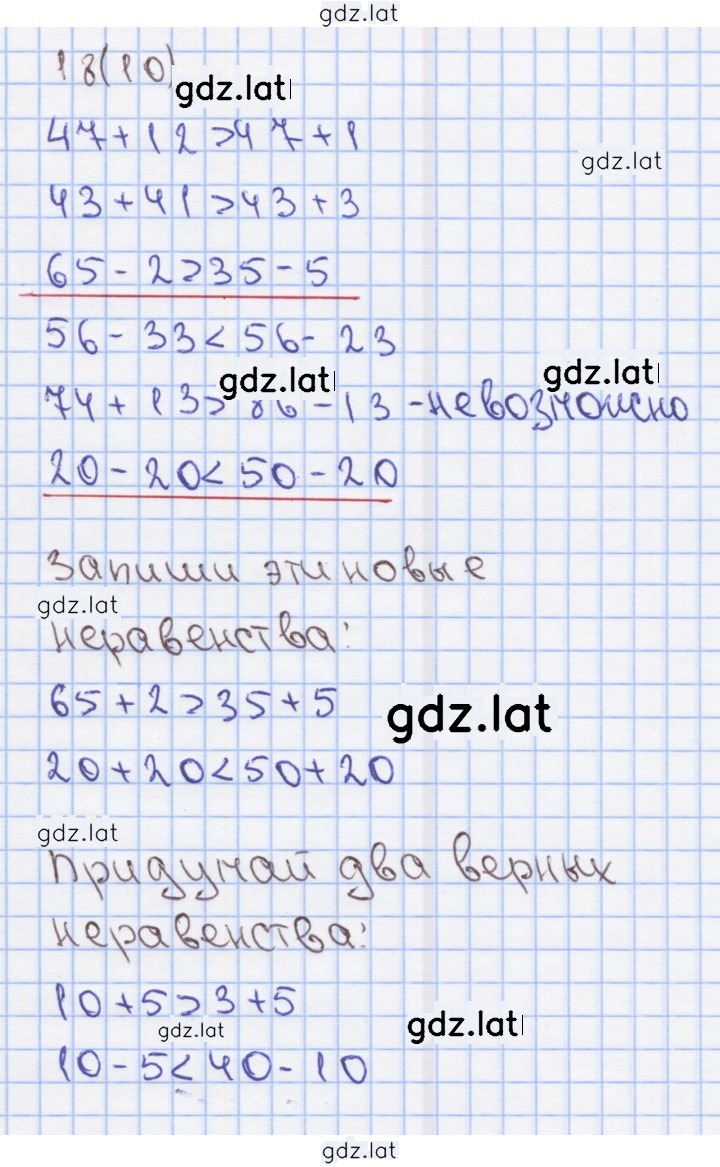 gdz.lat
18(10)
gdz.lat
47+12>47+1
gdz.lat
43+41>43+3
65-2>35-5
56-33<56-23
gdz.lat
gdz.lat
74+13> 86-13 -невозможно
20-20<50-20
Запиши эти новые
gdz.lat
неравенства:
65+2>35+5
gdz.lat
20+20<50+20
gdz.lat
Придумай два верных
неравенства:
10+5>3+5
gdz.lat
gdz.lat
10-5<40-10
gdz.lat